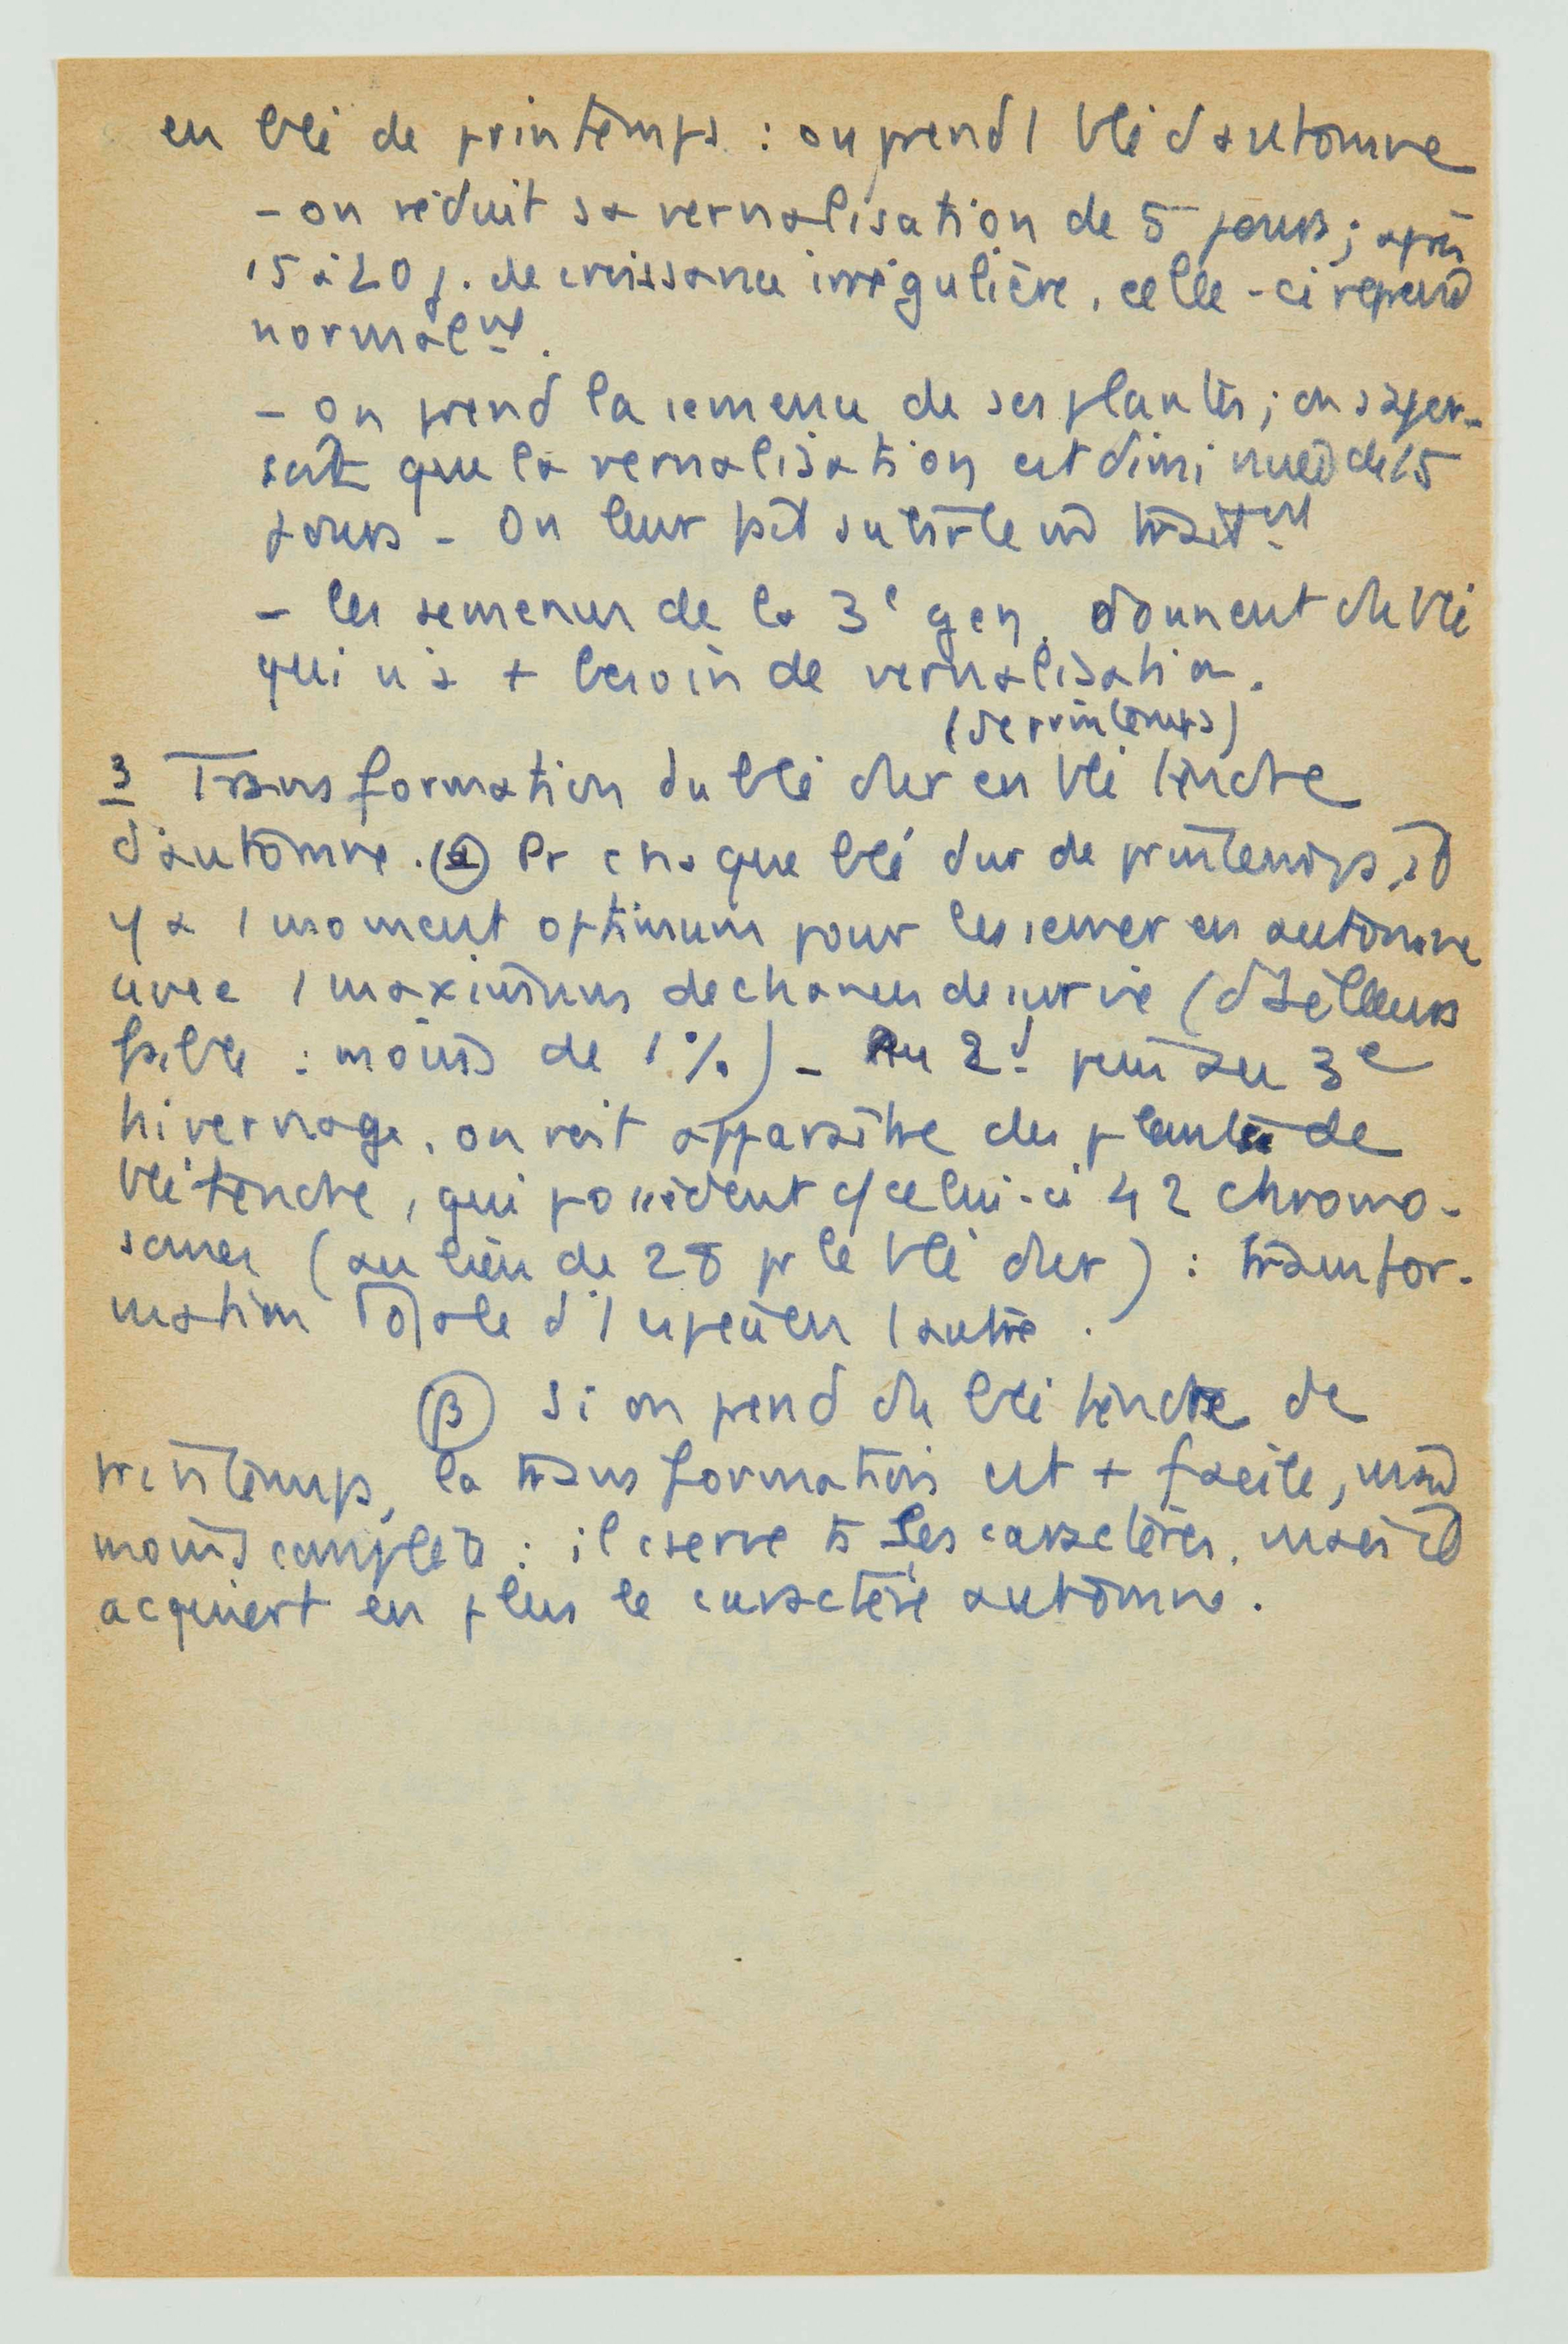 en blé de printemps : on prend 1 blé d'automne
- on réduit sa vernalisation de 5 jours ; après
15 à 20 j. de croissance irrégulière, celle-ci reprend
normalmt.
- on prend la semence de ses plantes ; on s'aper-
çoit que la vernalisation est diminuée de 15
jours - On leur fait subir le m̂ traitmt
- les semences de la 3e gen. donnent du blé
qui n'a + besoin de vernalisation.
(de printemps)
3 Transformation du blé dur en blé tendre
d'automne. (α) Pr chaque blé dur de printemps, il
y a 1 moment optimum pour les semer en automne
avec 1 maximum de chances de survie (d'ailleurs
faible : moins de 1%) - Au 2d puis au 3e
hivernage, on voit apparaître des plantes de
blé tendre, qui possèdent c/ celui-ci 42 chromo-
somes (au lieu de 28 pr le blé dur) : transfor-
mation totale d'1 espèce en l'autre.
(β) Si on prend du blé tendre de
printemps, la transformation est + facile, mais
moins complète : il cserve ts ses caractères, mais il
acquiert en plus le caractère automne.